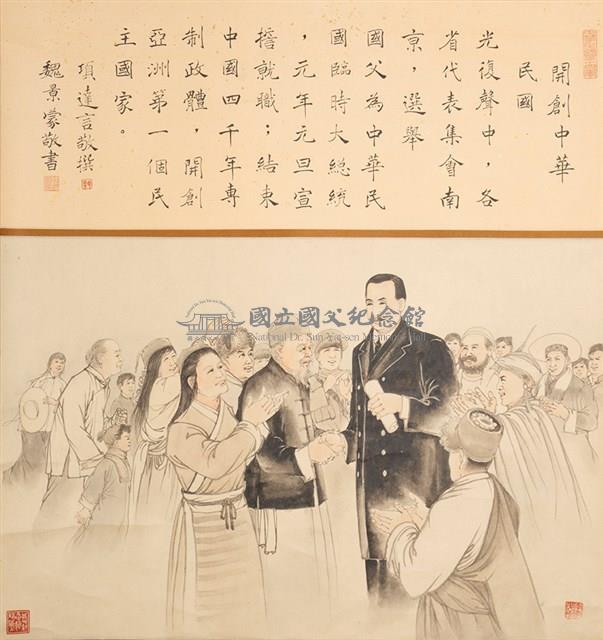 開創中華
民國
光復聲中，各
省代表集會南
京，選舉
國父為中華民
國臨時大總統
，元年元旦宣
誓就職；結束
中國四千年專
制政體，開創
亞洲第一個民
主國家。
項達言敬撰
魏景蒙敬書
國立國父紀念館
National Dr. Sun Yat-sen Memorial Hall